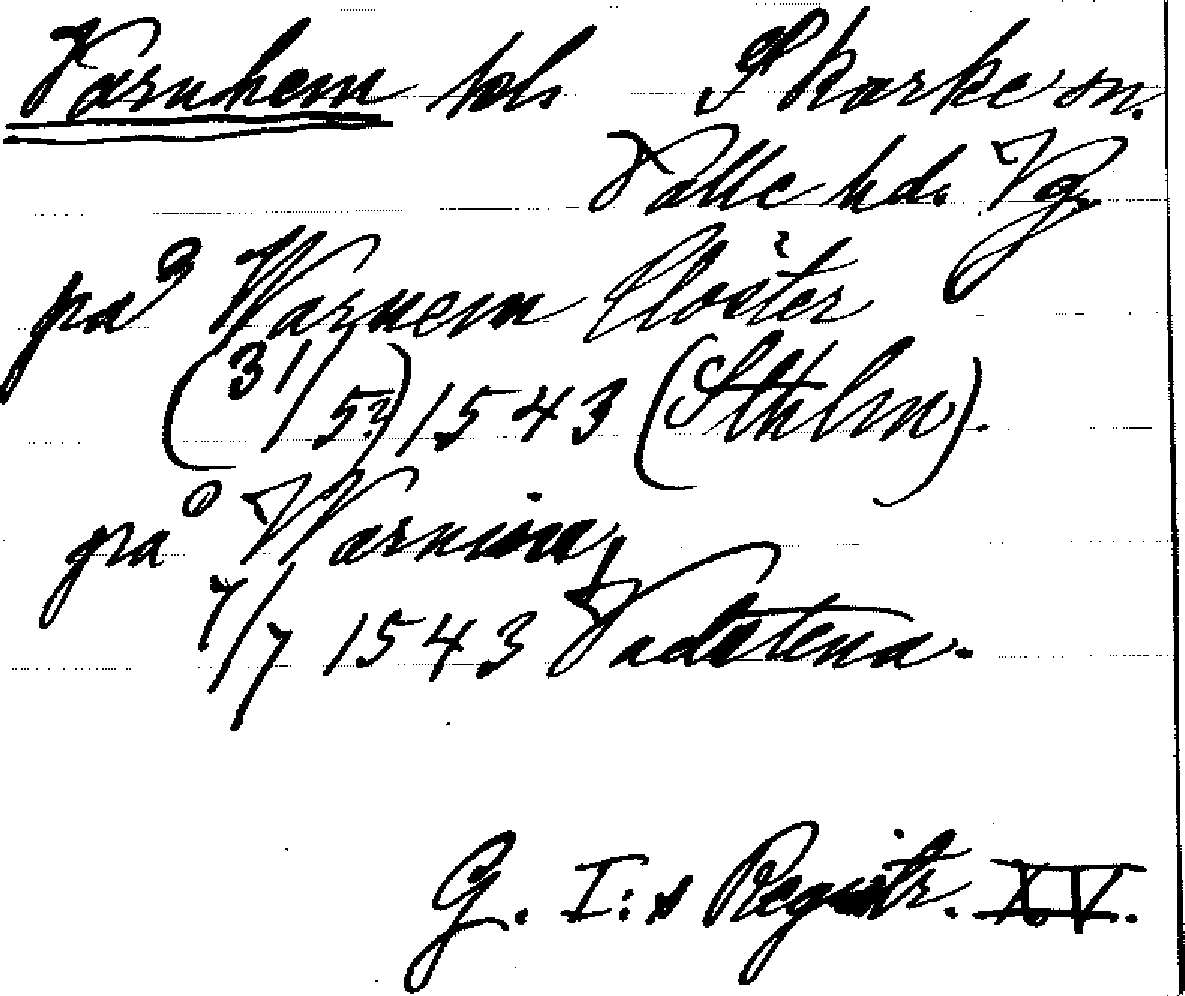 Varnhem tol. Skarke sn.
Valle hd. Vg.
på Warnem Closter
(31/5?) 1543 (Sthlm).
på Warnem,
7/7 1543 Vadstena.
G. I:s Registr. XV.